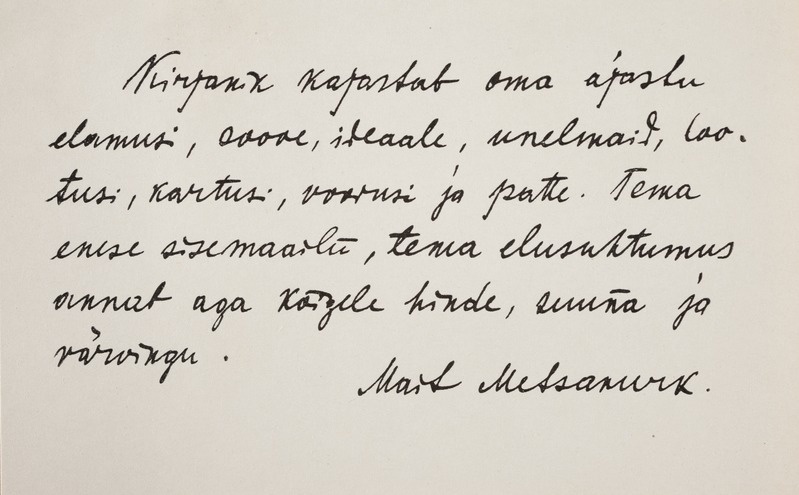 Kirjanik kajastab oma ajastu
elamusi, soove, ideaale, unelmaid, loo-
tusi, kartusi, voorusi ja patte. Tema
enese sisemaailm, tema elusuhtumus
annab aga kõigele hinde, suuna ja
värvingu.
Mait Metsanurk.